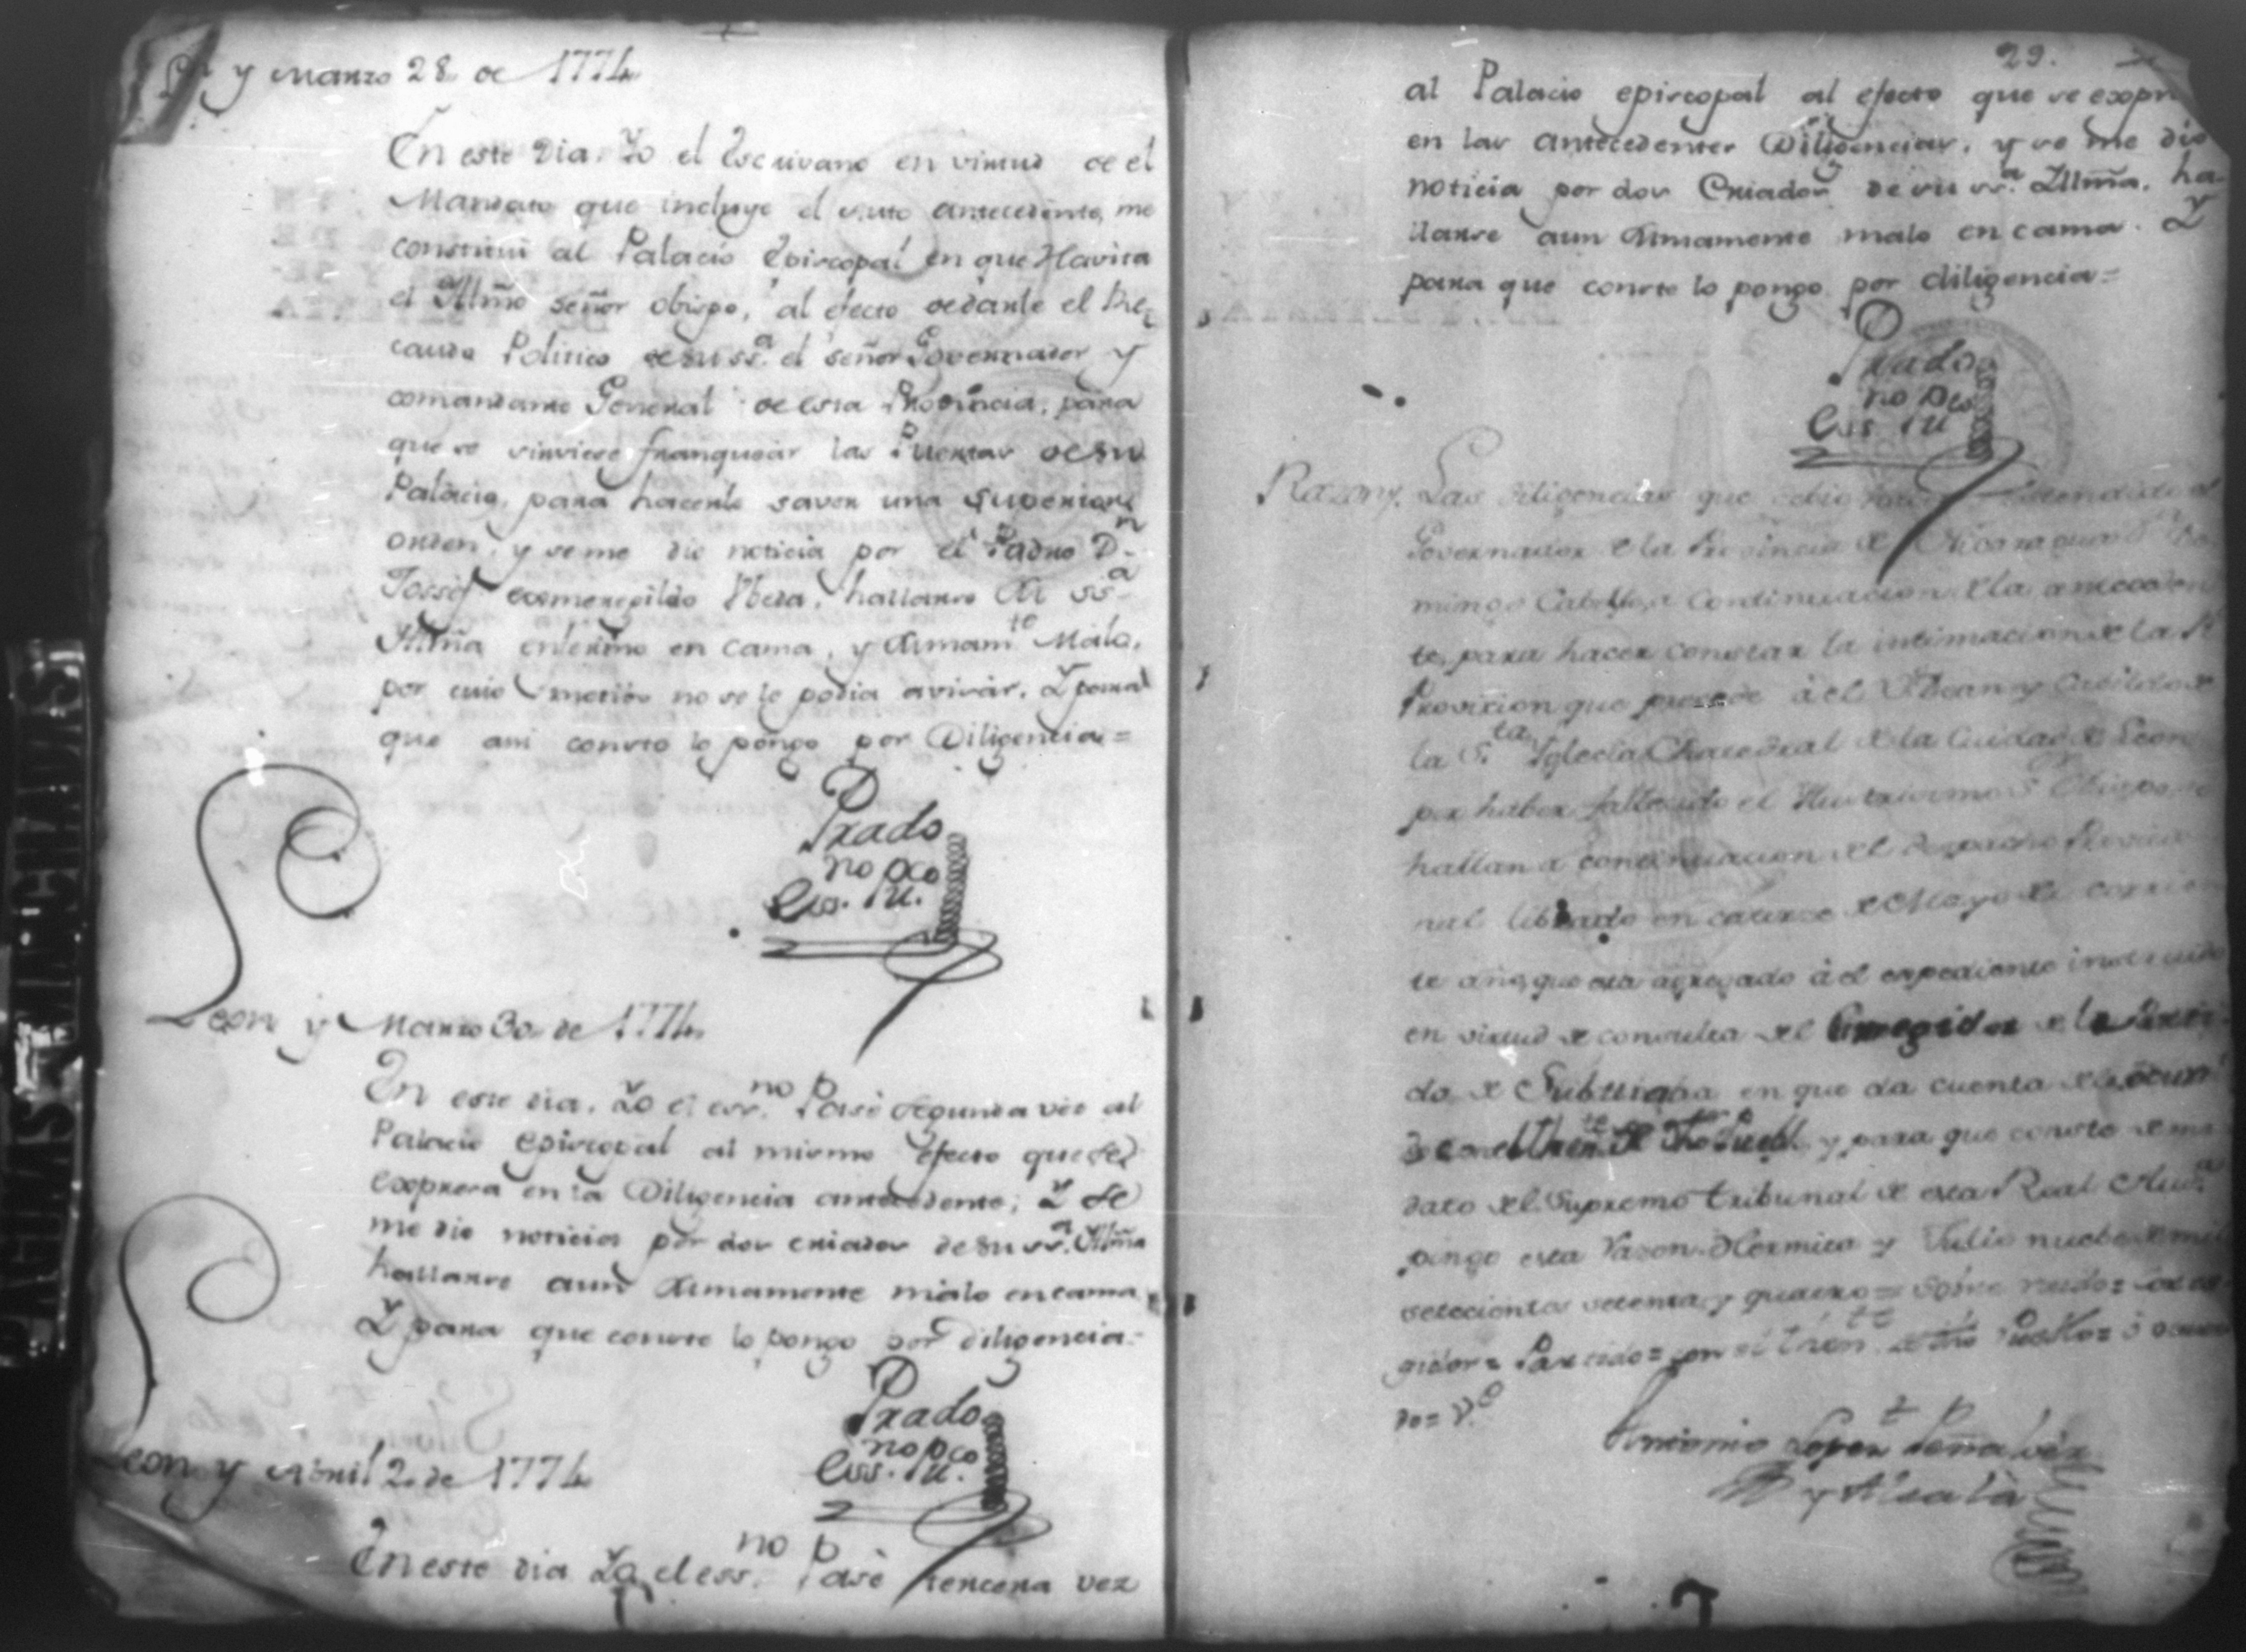 y Marzo 28. de 1774.
En este dia. Yo el Escrivano en virtud de el
Mandato que incluye el auto antecedente, me
constitui al Palacio Episcopal en que Havita
el Illmo señor obispo, al efecto de darle el Re-
caudo Politico de su ssª. el señor Governador y
comandante General de esta Provincia, para
que se sirviese franquear las Puertas de su
Palacio, para hacerle saver una superior
orden, y se me dio noticia por el Padre Dn.
Jossef ermenegildo hallarse su ssª
Illmª enfermo en cama, y sumamte Malo,
por cuio motibo no se le podia avisár. Y para
que asi conste lo pongo por Diligencia=
Prado
no pco
Ess. Pu.
Leon y Marzo 30. de 1774.
En este dia. Yo el ess.no Pasè segunda vez al
Palacio episcopal al mismo efecto que se
expresa en la Diligencia antecedente; Y se
me dio noticia por dos criados de su ssª. Illmª
hallarse aun sumamente malo en cama
Y para que conste lo pongo por diligencia=
Prado
no pco
Ess. Pu.
Leon y Abril 2. de 1774.
En este dia Yo el ess.no Pasè tercera vez
29.
al Palacio episcopal al efecto que se expr
en las antecedentes Diligencias, y se me dio
noticia por dos Criados de su ssª. Illmª. ha-
llarse aun sumamente malo en cama. Y
para que conste lo pongo por diligencia=
Prado
no pco
Ess. Pu
Razon. Las diligencias que debio
Governador de la Provincia de Nicaragua Dn Do
mingo Cabello, a Continuacion de la anteceden
te, para hacer constar la intimacion de la Rl
Provision que precede à el Sr Dean y Cabildo de
la S.ta Iglecia Chatedral de la Ciudad de Leon
por haber fallecido el Illustrisimo Sr Obispo se
hallan a continuacion del Despacho Provicio
nal librado en catorce de Mayo de corrien
te año, que esta agregado à el expediente instruido
en virtud de consulta del Corregidor de la Parti
do de Subtiaba en que da cuenta de lo ocurri
do con el thente de dho Puebl. y para que conste de man
dato del Supremo tribunal de esta Real Audª
pongo esta razon. Hermita y Julio nuebe de mil
setecientos setenta, y quatro= sobre raido= Corre
gidor= Partido= con el thente de dho Pueblo=
do= V.e
Antonio Lopez Peñalver
y Alcalà